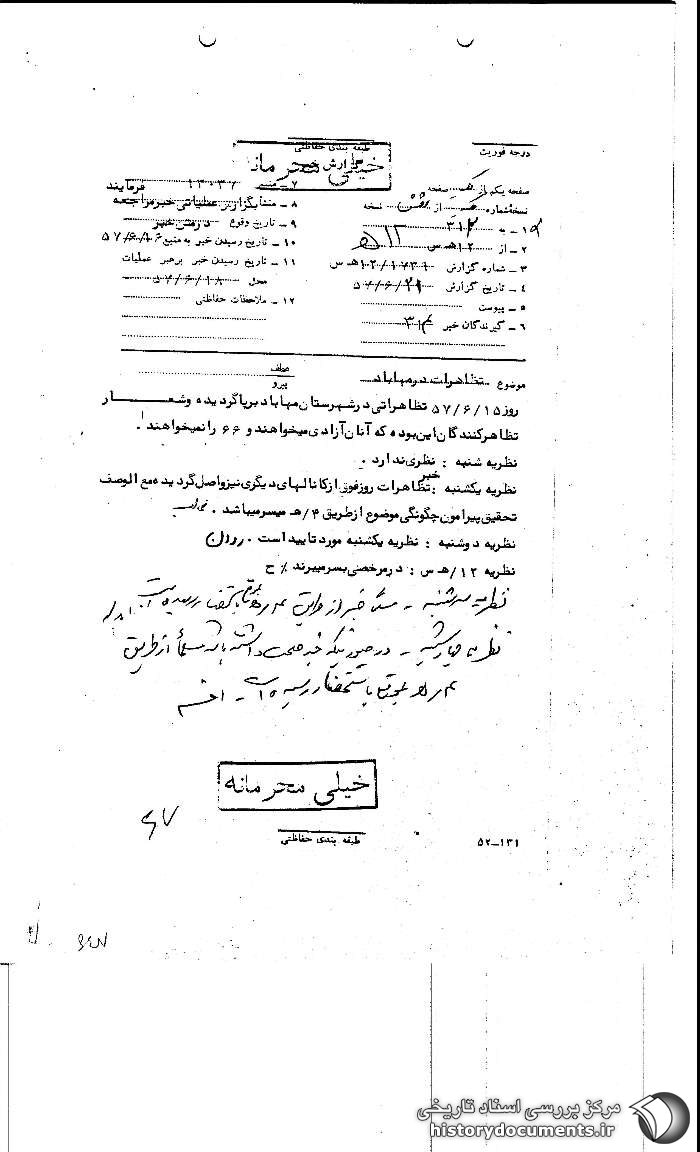 درجه فوریت
طبقه بندی حفاظتی
خیلی محرمانه
گزارش خبر
صفحه یکم از یک صفحه
نسخه شماره از نسخه
۱ - به ۳۱۲
۲ - از ۱۲ ه‍ س
۳ - شماره گزارش
۴ - تاریخ گزارش ۵۷/۶/۲۱
۵ - پیوست
۶ - گیرندگان خبر
۷ - فرمایند
۸ - منشأ بگزارش عملیاتی خبر مراجعه
۹ - تاریخ وقوع در متن خبر
۱۰ - تاریخ رسیدن خبر به منبع ۵۷/۶/۱۶
۱۱ - تاریخ رسیدن خبر برهبر عملیات
محل ۵۷/۶/۱۸
۱۲ - ملاحظات حفاظتی
موضوع تظاهرات در مهاباد
عطف
پیرو
روز ۵۷/۶/۱۵ تظاهراتی در شهرستان مهاباد برپا گردیده و شعار
تظاهرکنندگان این بوده که آنان آزادی میخواهند و ۶۶ را نمیخواهند .
نظریه شنبه : نظری ندارد .
نظریه یکشنبه : خبر تظاهرات روز فوق از کانالهای دیگری نیز واصل گردیده مع الوصف
تحقیق پیرامون چگونگی موضوع از طریق ۴/ه‍ میسر میباشد .
نظریه دوشنبه : نظریه یکشنبه مورد تایید است . روان
نظریه ۱۲/ه‍ س : در مرخصی بسر میبرند ٪ ح
نظریه سه شنبه -
نظریه چهارشنبه - در صورتیکه خبر صحت داشته باشد مسلماً از طریق
خیلی محرمانه
طبقه بندی حفاظتی
۵۲-۱۳۱
مرکز بررسی اسناد تاریخی
historydocuments.ir